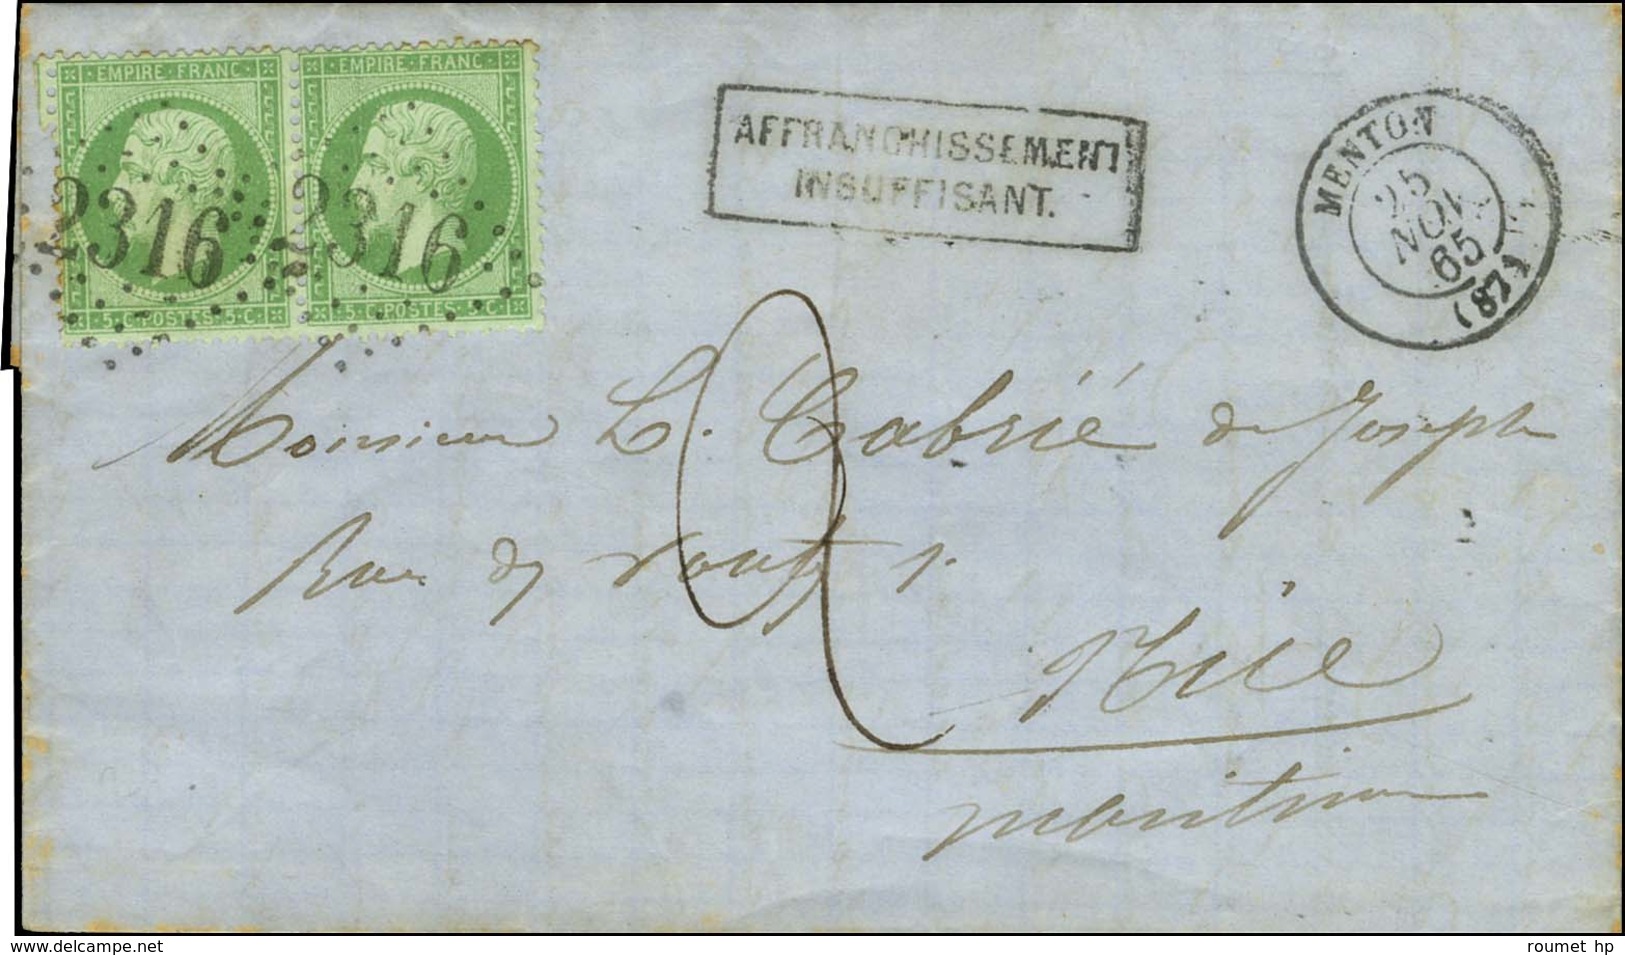 EMPIRE FRANC
EMPIRE FRANC
2316
2316
5 C POSTES 5 C
5 C POSTES 5 C
AFFRANCHISSEMENT
INSUFFISANT.
MENTON
25
NOV.
65
(87)
2
Monsieur L. Cabrié de Joseph
Rue du 1.
Nice
maritimes
www.delcampe.net
roumet hp